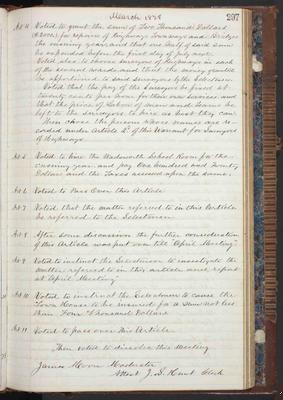 March 1888
297
Art 4 Voted to grant the sum of Two Thousand Dollars
for repairs of highways Townways and Bridges
the ensuing year, and that one half of said sum
be expended before the first day of July next.
Voted also to choose surveyors of highways in each
of the several wards, and that the money granted
be apportioned to said surveyors by the Selectmen
Voted that the pay of the surveyors be fixed at
twenty cents per hour for their own service and
that the price of Labor of men and teams be
left to the surveyors to hire as best they can
Then chose the persons whose names are re-
corded under Article 2d of this Warrant for Surveyors
of Highways
Art 5 Voted to hire the Wadsworth School Room for the
ensuing year and pay One hundred and twenty
Dollars and the Taxes assessed upon the same.
Art 6 Voted to Pass Over this Article
Art 7 Voted that the matter referred to in this Article
be referred to the Selectmen
Art 8 After some discussion the further consideration
of this Article was put over till "April Meeting"
Art 9 Voted to instruct the Selectmen to investigate the
matter referred to in this article and report
at April Meeting"
Art 10 Voted to instruct the Selectmen to cause the
Town House to be insured for a sum not less
than Four Thousand Dollars
Art 11 Voted to pass over this Article
Then voted to dissolve this Meeting
James Moore Moderator
Attest J. S. Hunt Clerk